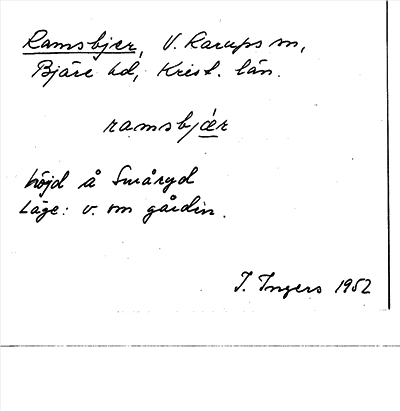 Ramsbjer, V. Karups sn,
Bjäre hd, Krist. län.
ramsbjǽr
höjd å Småryd
Läge: v. om gården.
I. Ingers 1952